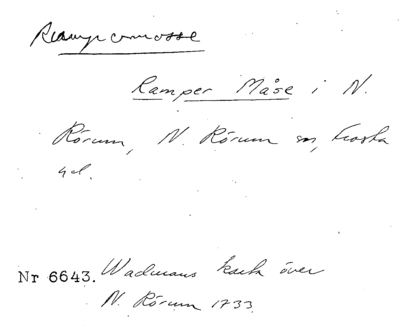 Rampermosse
Ramper Måse i N.
Rörum, N. Rörum sn, Frosta
hd.
Nr 6643. Wadmans karta över
N. Rörum 1733